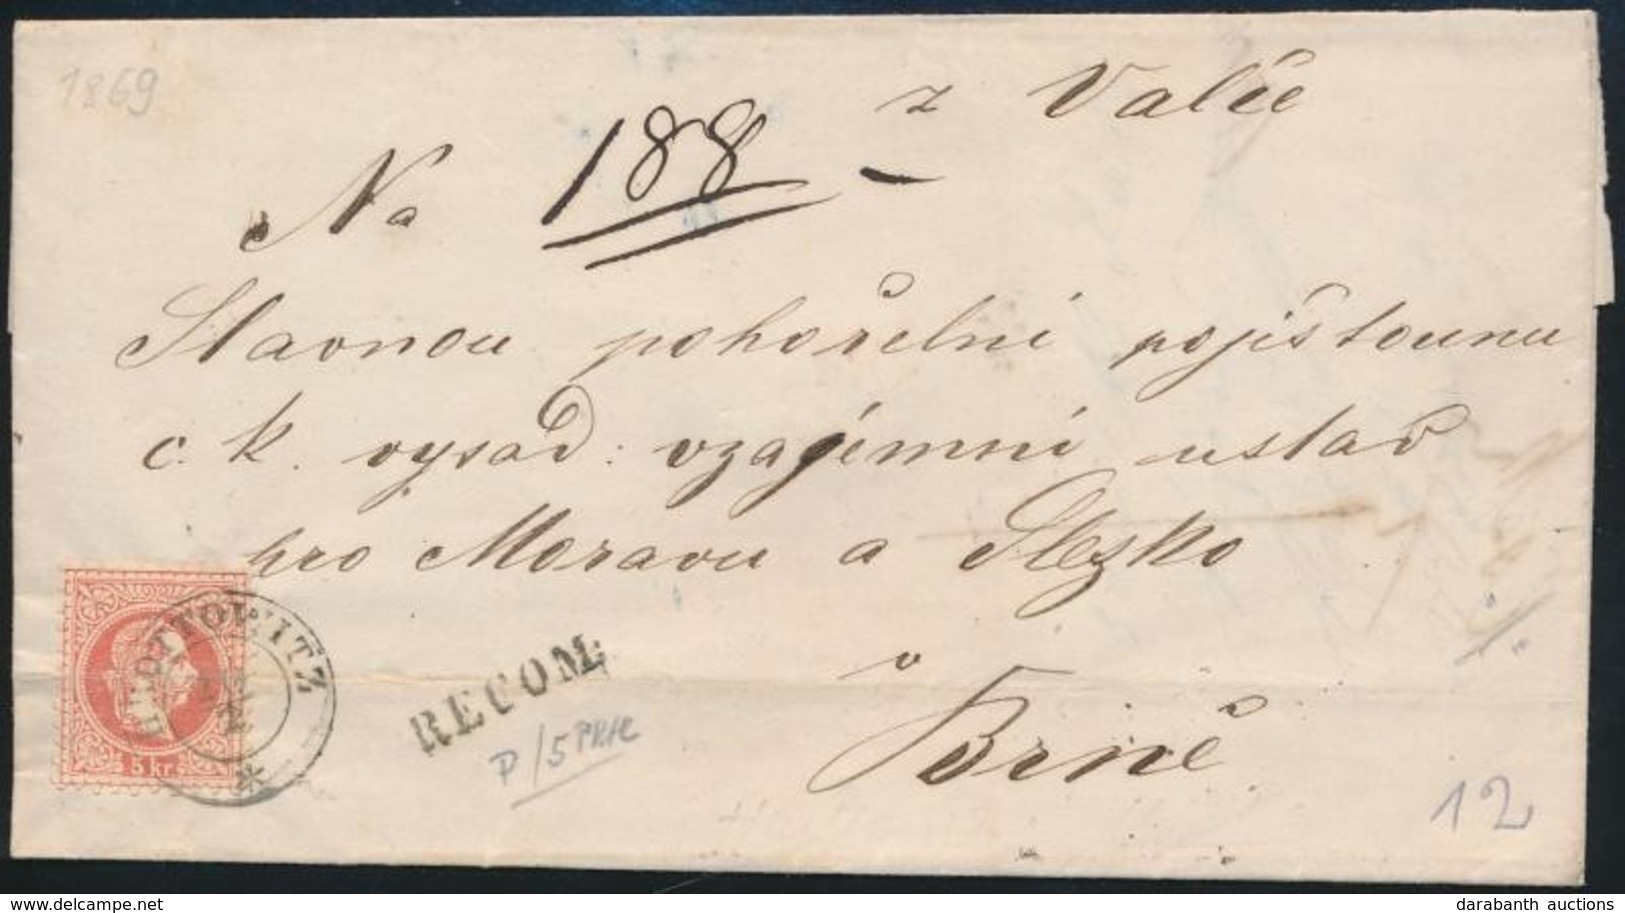 1869
z Valče
Na 188 –
Slavnou pohořelni pojištounu
c. k. vysad: vzajémni ustav
pro Moravu a Slezko
v
Brně
RECOM:
P/5
12
5 kr.
delcampe.net
darabanth auctions